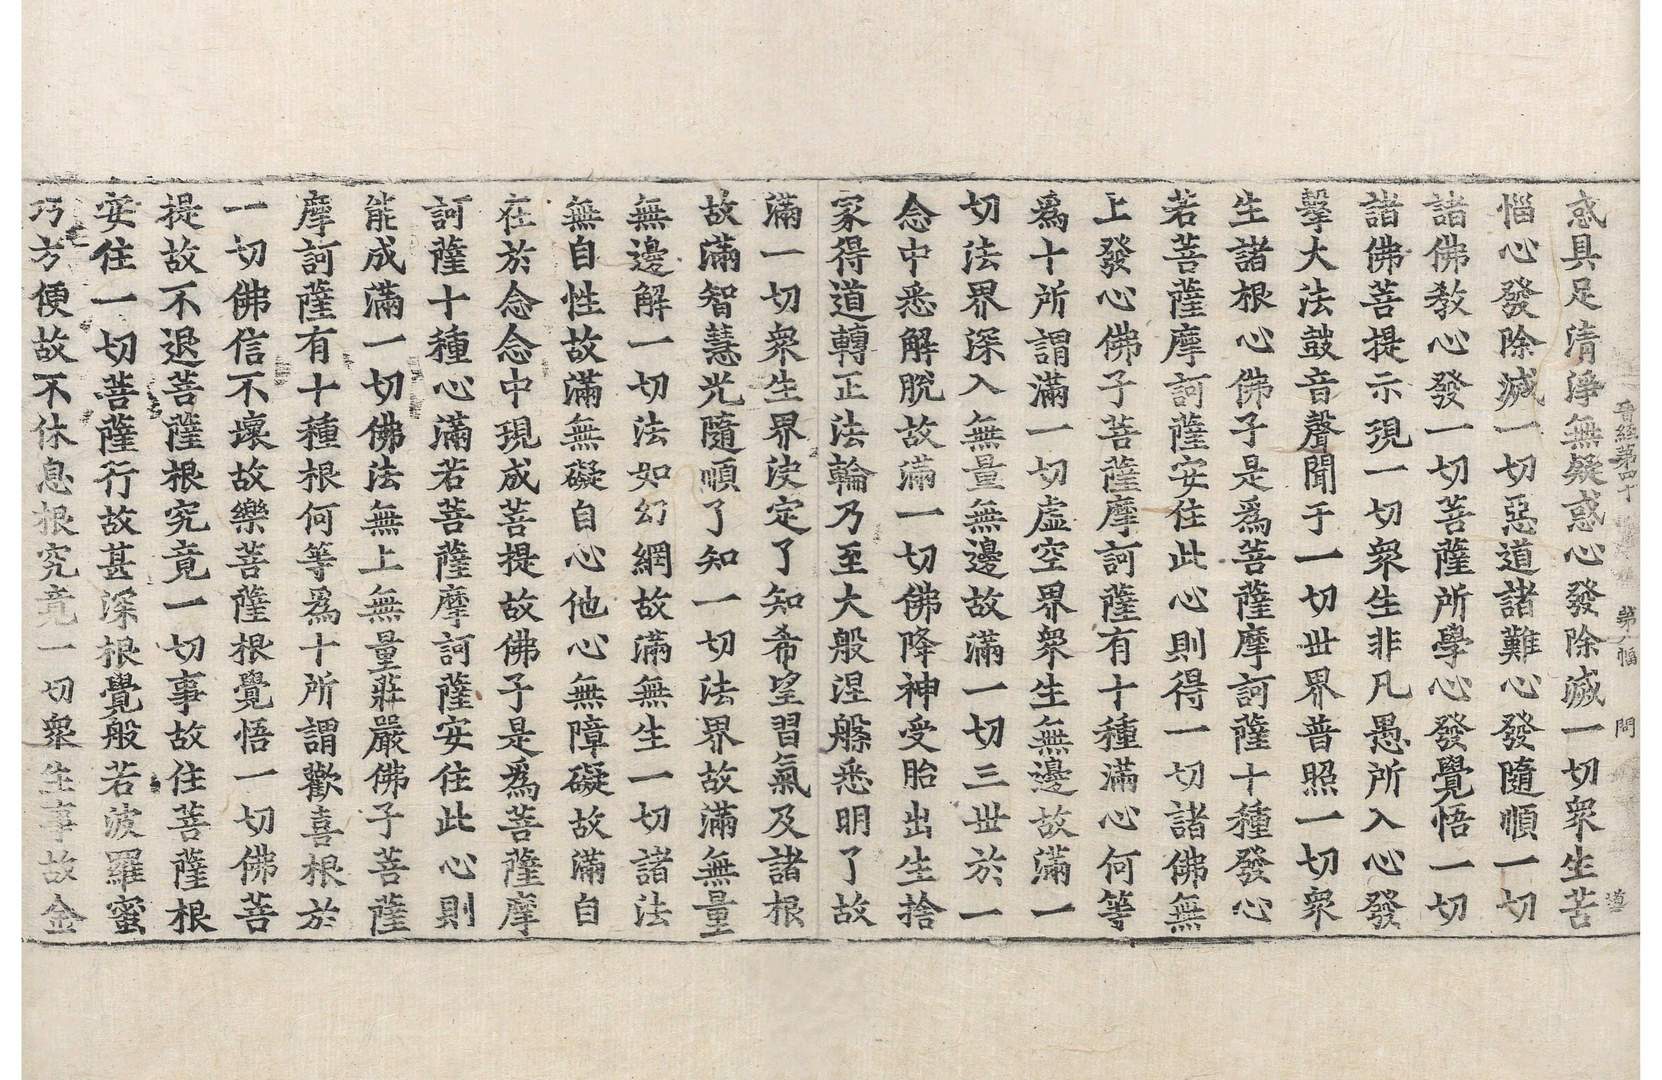 晉經第四十 第八幅 問 道
惑具足清淨無疑惑心發除滅一切衆生苦
惱心發除滅一切惡道諸難心發隨順一切
諸佛教心發一切菩薩所學心發覺悟一切
諸佛菩提示現一切衆生非凡愚所入心發
擊大法鼓音聲聞于一切世界普照一切衆
生諸根心佛子是爲菩薩摩訶薩十種發心
若菩薩摩訶薩安住此心則得一切諸佛無
上發心佛子菩薩摩訶薩有十種滿心何等
爲十所謂滿一切虛空界衆生無邊故滿一
切法界深入無量無邊故滿一切三世於一
念中悉解脫故滿一切佛降神受胎出生捨
家得道轉正法輪乃至大般涅槃悉明了故
滿一切衆生界決定了知希望習氣及諸根
故滿智慧光隨順了知一切法界故滿無量
無邊解一切法如幻網故滿無生一切諸法
無自性故滿無礙自心他心無障礙故滿自
在於念念中現成菩提故佛子是爲菩薩摩
訶薩十種心滿若菩薩摩訶薩安住此心則
能成滿一切佛法無上無量莊嚴佛子菩薩
摩訶薩有十種根何等爲十所謂歡喜根於
一切佛信不壞故樂菩薩根覺悟一切佛菩
提故不退菩薩根究竟一切事故住菩薩根
安住一切菩薩行故甚深根覺般若波羅蜜
巧方便故不休息根究竟一切衆生事故金